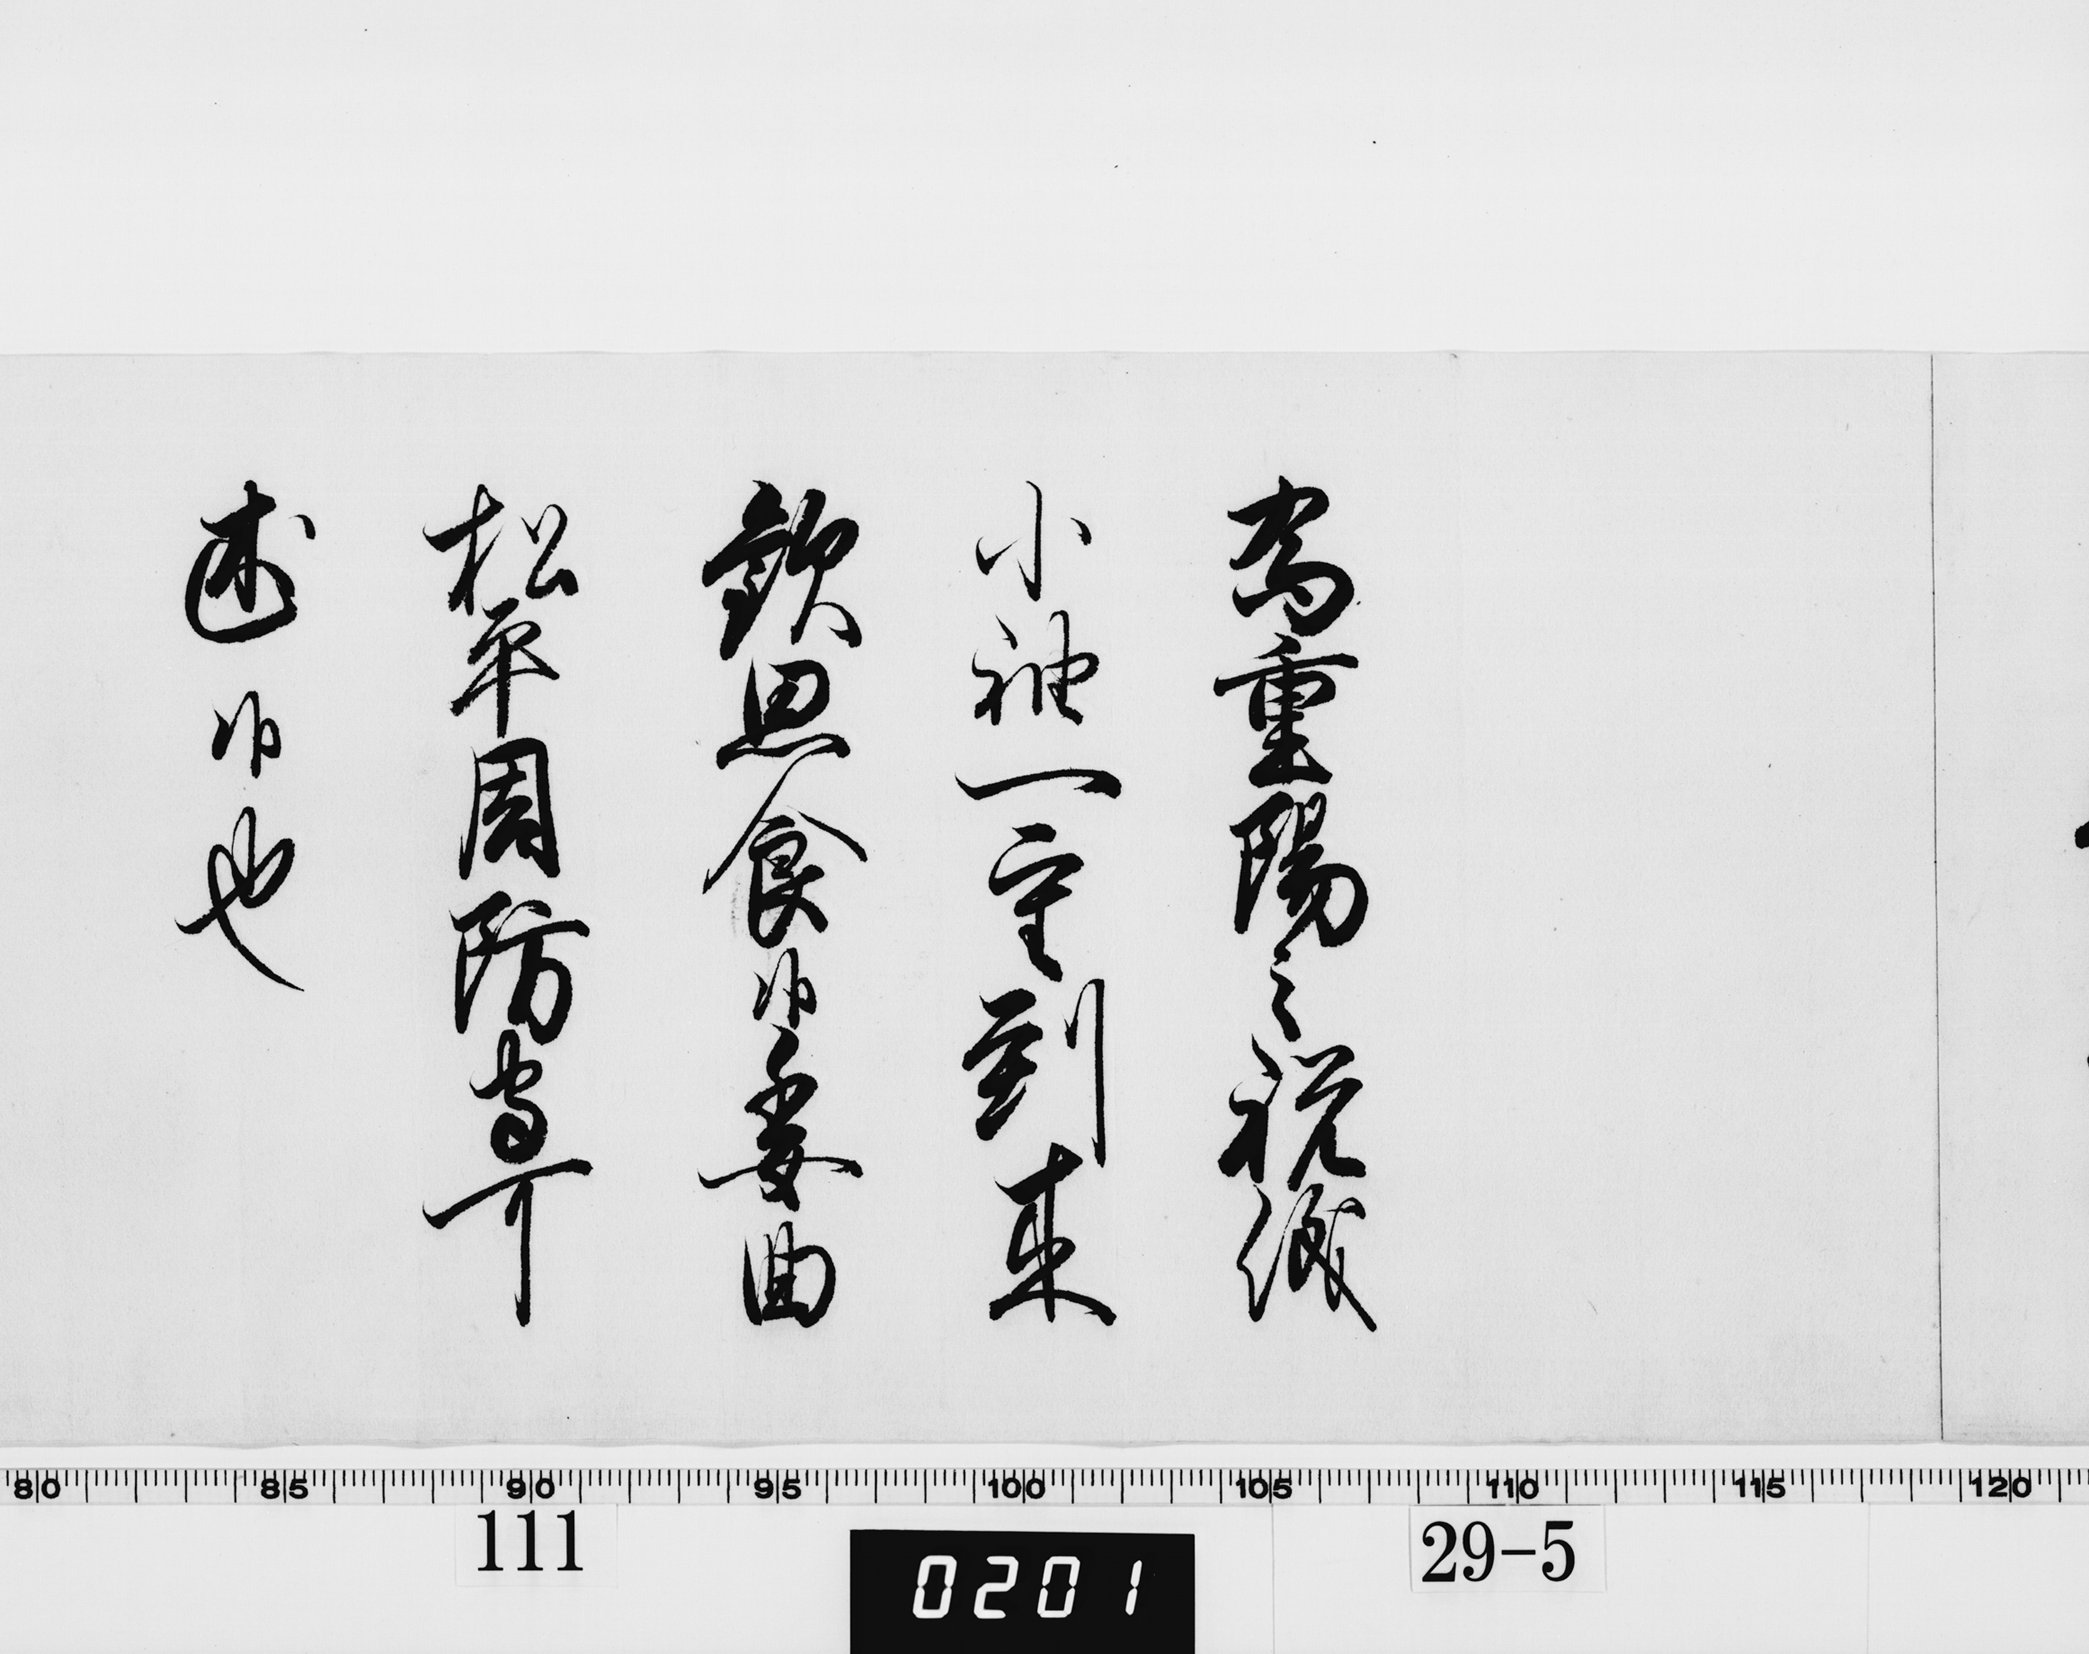 為重陽之祝儀
小袖一重到来
歓思食候委曲
松平周防守可
述候也
80 85 90 95 100 105 110 115 120
111
0201
29-5